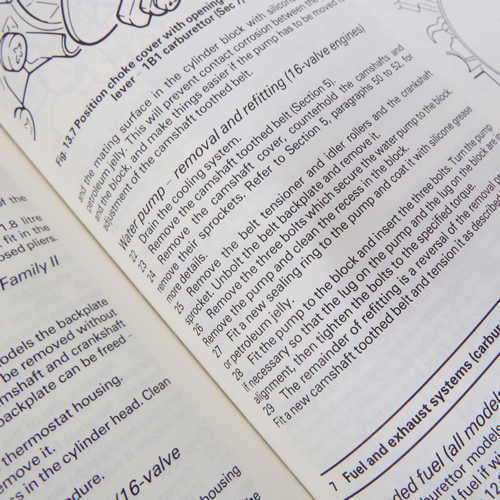 1.8 litre
fit in the
osed pliers.
Family II
odels the backplate
be removed without
mshaft and crankshaft
backplate can be freed –
thermostat housing.
emove it.
s in the cylinder head. Clean
edure.
(16-valve
housing
Fig. 13.7 Position choke cover with opening
lever – 1B1 carburettor (Sec 7)
and the mating surface in the cylinder block with silicone
petroleum jelly. This will prevent contact corrosion between the
and the block and make things easier if the pump has to be moved
adjustment of the camshaft toothed belt.
Water pump – removal and refitting (16-valve engines)
22 Drain the cooling system.
23 Remove the camshaft toothed belt (Section 5).
24 Remove the camshaft cover, counterhold the camshafts and
remove their sprockets. Refer to Section 5, paragraphs 50 to 52, for
more details.
25 Remove the belt tensioner and idler rollers and the crankshaft
sprocket. Unbolt the belt backplate and remove it.
26 Remove the three bolts which secure the water pump to the block.
Remove the pump and clean the recess in the block.
27 Fit a new sealing ring to the pump and coat it with silicone grease
or petroleum jelly.
28 Fit the pump to the block and insert the three bolts. Turn the pump
if necessary so that the lug on the pump and the lug on the block are in
alignment, then tighten the bolts to the specified torque.
29 The remainder of refitting is a reversal of the removal
Fit a new camshaft toothed belt and tension it as described
7 Fuel and exhaust systems (carbu
ded fuel (all models
rettor models
fuel if